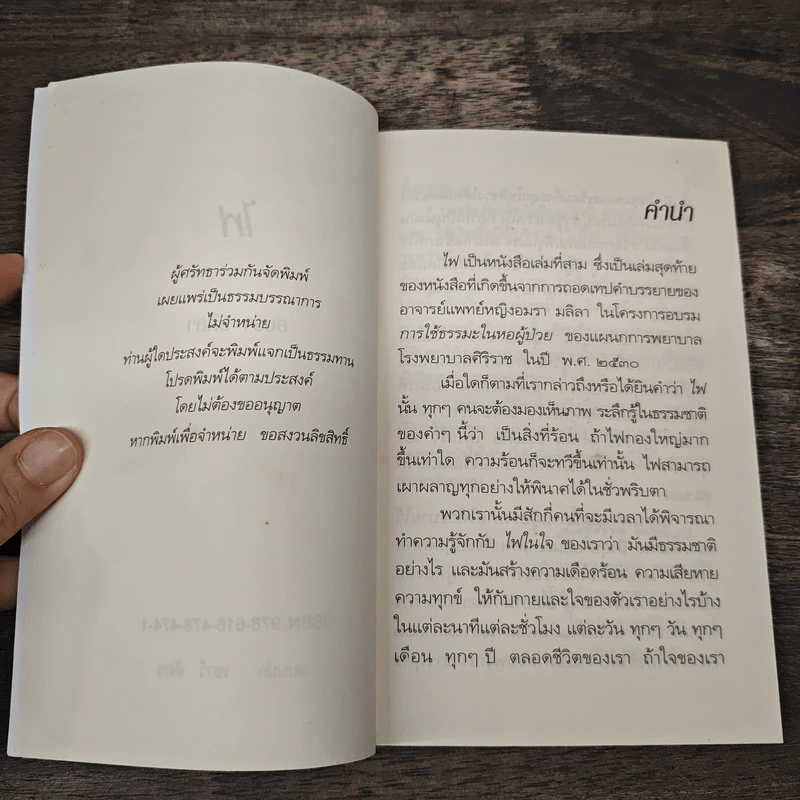 ผู้ศรัทธาร่วมกันจัดพิมพ์
เผยแพร่เป็นธรรมบรรณาการ
ไม่จำหน่าย
ท่านผู้ใดประสงค์จะพิมพ์แจกเป็นธรรมทาน
โปรดพิมพ์ได้ตามประสงค์
โดยไม่ต้องขออนุญาต
หากพิมพ์เพื่อจำหน่าย ขอสงวนลิขสิทธิ์
ไฟ
ISBN 978-616-478-474-1
คำนำ
ไฟ เป็นหนังสือเล่มที่สาม ซึ่งเป็นเล่มสุดท้าย
ของหนังสือที่เกิดขึ้นจากการถอดเทปคำบรรยายของ
อาจารย์แพทย์หญิงอมรา มลิลา ในโครงการอบรม
การใช้ธรรมะในหอผู้ป่วย ของแผนกการพยาบาล
โรงพยาบาลศิริราช ในปี พ.ศ. ๒๕๓๐
เมื่อใดก็ตามที่เรากล่าวถึงหรือได้ยินคำว่า ไฟ
นั้น ทุกๆ คนจะต้องมองเห็นภาพ ระลึกรู้ในธรรมชาติ
ของคำๆ นี้ว่า เป็นสิ่งที่ร้อน ถ้าไฟกองใหญ่มาก
ขึ้นเท่าใด ความร้อนก็จะทวีขึ้นเท่านั้น ไฟสามารถ
เผาผลาญทุกอย่างให้พินาศได้ในชั่วพริบตา
พวกเรานั้นมีสักกี่คนที่จะมีเวลาได้พิจารณา
ทำความรู้จักกับ ไฟในใจ ของเราว่า มันมีธรรมชาติ
อย่างไร และมันสร้างความเดือดร้อน ความเสียหาย
ความทุกข์ ให้กับกายและใจของตัวเราอย่างไรบ้าง
ในแต่ละนาทีแต่ละชั่วโมง แต่ละวัน ทุกๆ วัน ทุกๆ
เดือน ทุกๆ ปี ตลอดชีวิตของเรา ถ้าใจของเรา